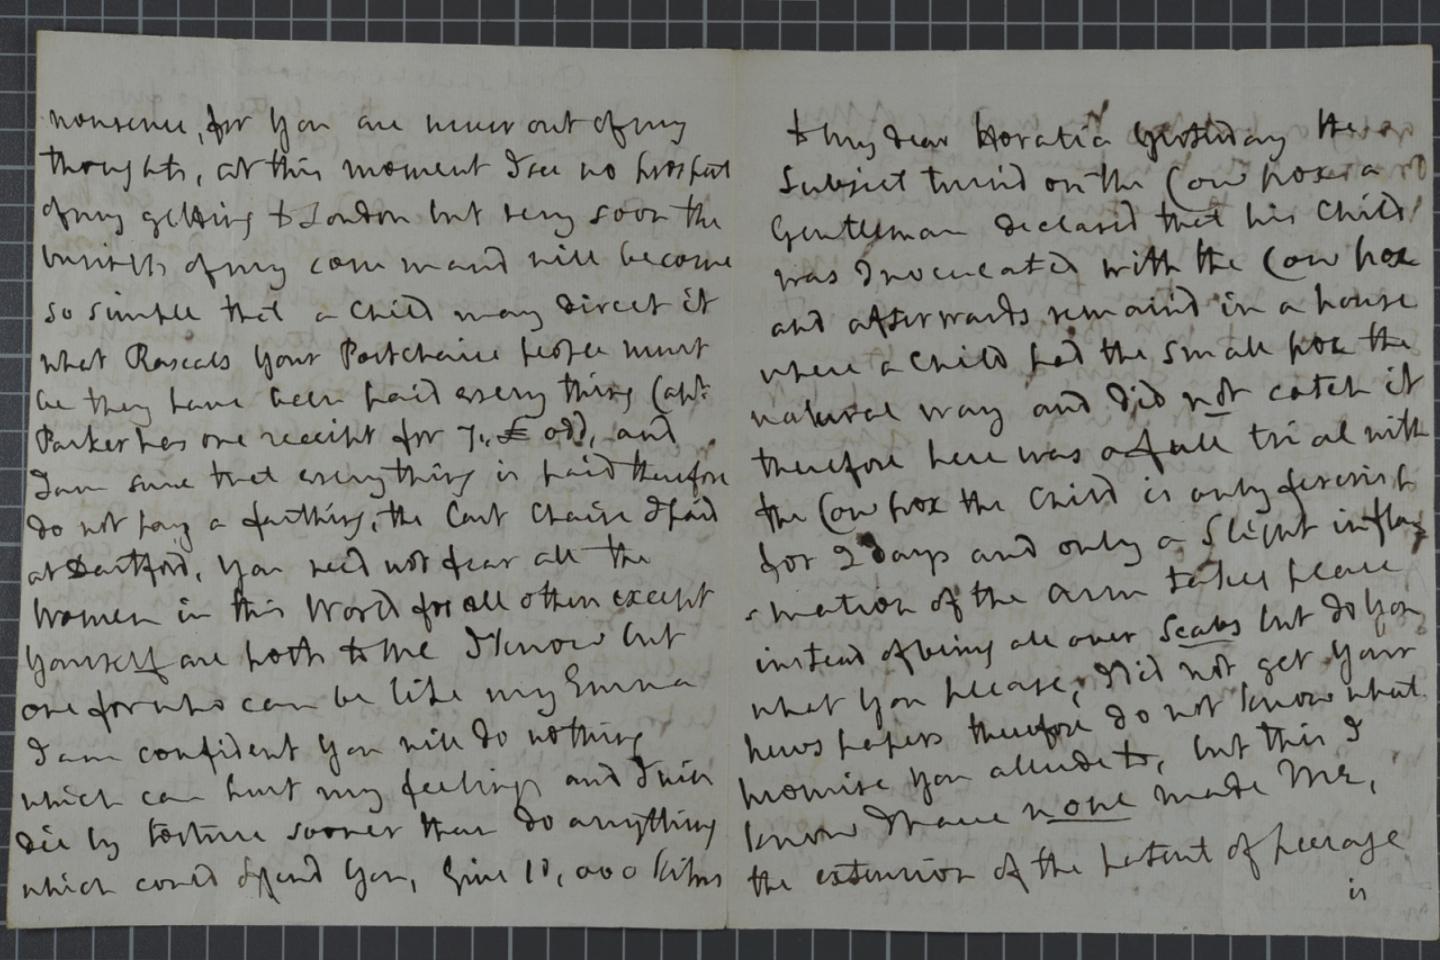 nonsense, for you are never out of my
thoughts, at this moment I see no prospect
of my getting to London but very soon the
business of my command will become
so simple that a Child may direct it
what Rascals your Postchaise people must
be they have been paid every thing Capt:
Parker has one receipt for 7,, £ odd, and
I am sure that everything is paid therefore
do not pay a farthing, the Cart Chaise I paid
at Dartford, you need not fear all the
Women in this World for all others except
yourself are pests to Me I know but
one for who can be like my Emma
I am confident you will do nothing
which can hurt my feelings and I will
die by torture sooner than do anything
which could offend you, Give 10,000 kisses
to my dear Horatia yesterday the
Subject turnd on the Cow pox a
Gentleman declared that his Child
was Inoculated with the Cow pox
and afterwards remaind in a house
where a Child had the small pox the
natural way and did not catch it
therefore here was a full trial with
the Cow pox the Child is only feverish
for 2 days and only a Slight inflam
mation of the arm takes place
instead of being all over Scabs but do you
what you please, I did not get your
news papers therefore do not know what
promise you allude to, but this I
know I have none made Me,
the extension of the patent of peerage
is